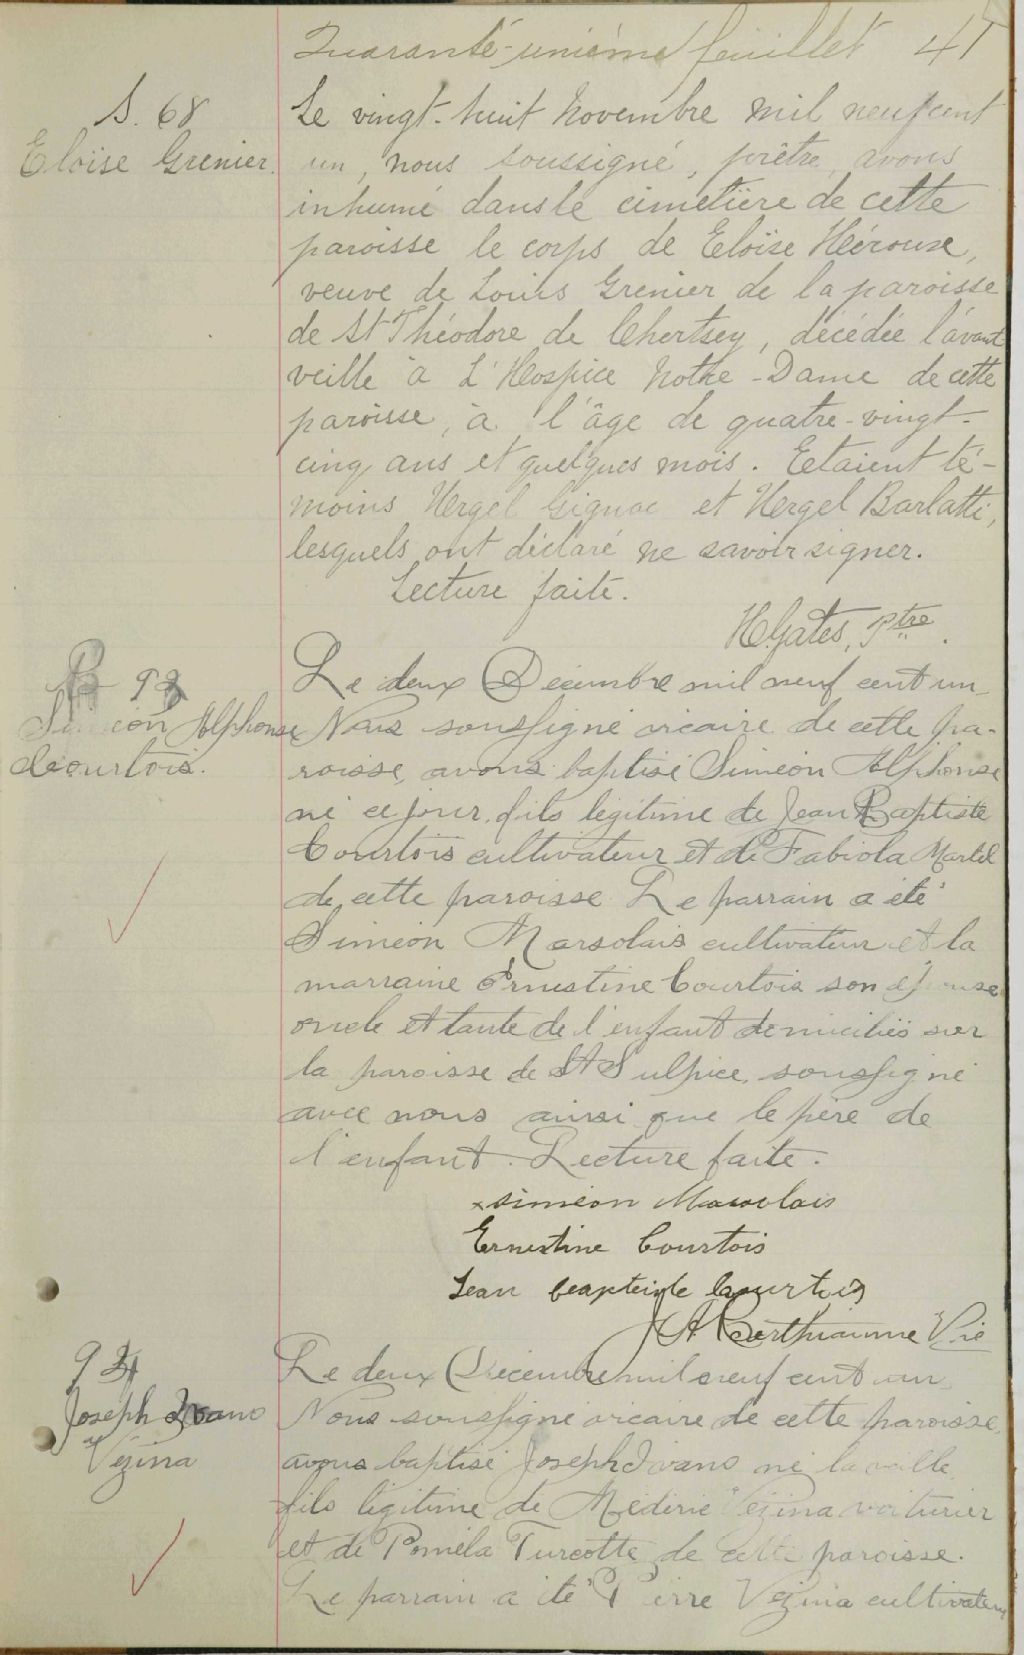 Quarante-unième feuillet 41
S. 68
Eloïse Grenier.
Le vingt-huit Novembre mil neuf cent
un, nous soussigné, prêtre, avons
inhumé dans le cimetière de cette
paroisse le corps de Eloïse Hérouse,
veuve de Louis Grenier de la paroisse
de St Théodore de Chertsey, décédée l'avant
veille à L'Hospice Notre-Dame de cette
paroisse, à l'âge de quatre-vingt-
cinq ans et quelques mois. Etaient té-
moins Hergel Gignac et Hergel Barlatti,
lesquels ont déclaré ne savoir signer.
Lecture faite.
H. Gates, Ptre.
B 93
Siméon Alphonse
Courtois.
Le deux Décembre mil neuf cent un
Nous soussigné vicaire de cette pa-
roisse, avons baptisé Siméon Alphonse
né ce jour, fils légitime de Jean Baptiste
Courtois cultivateur et de Fabiola Martel
de cette paroisse Le parrain a été
Siméon Marsolais cultivateur et la
marraine Ernestine Courtois son épouse
oncle et tante de l'enfant domiciliés sur
la paroisse de St Sulpice, soussigné
avec nous ainsi que le père de
l'enfant. Lecture faite.
x siméon Marsolais
Ernestine Courtois
Jean beapteiste Courtois
J A Berthiaume Vic
94
Joseph Ivano
Vézina
Le deux Décembre mil neuf cent un
Nous soussigné vicaire de cette paroisse,
avons baptisé Joseph Ivano né la veille
fils légitime de Médéric Vézina voiturier
et de Poméla Turcotte de cette paroisse.
Le parrain a été Pierre Vézina cultivateur